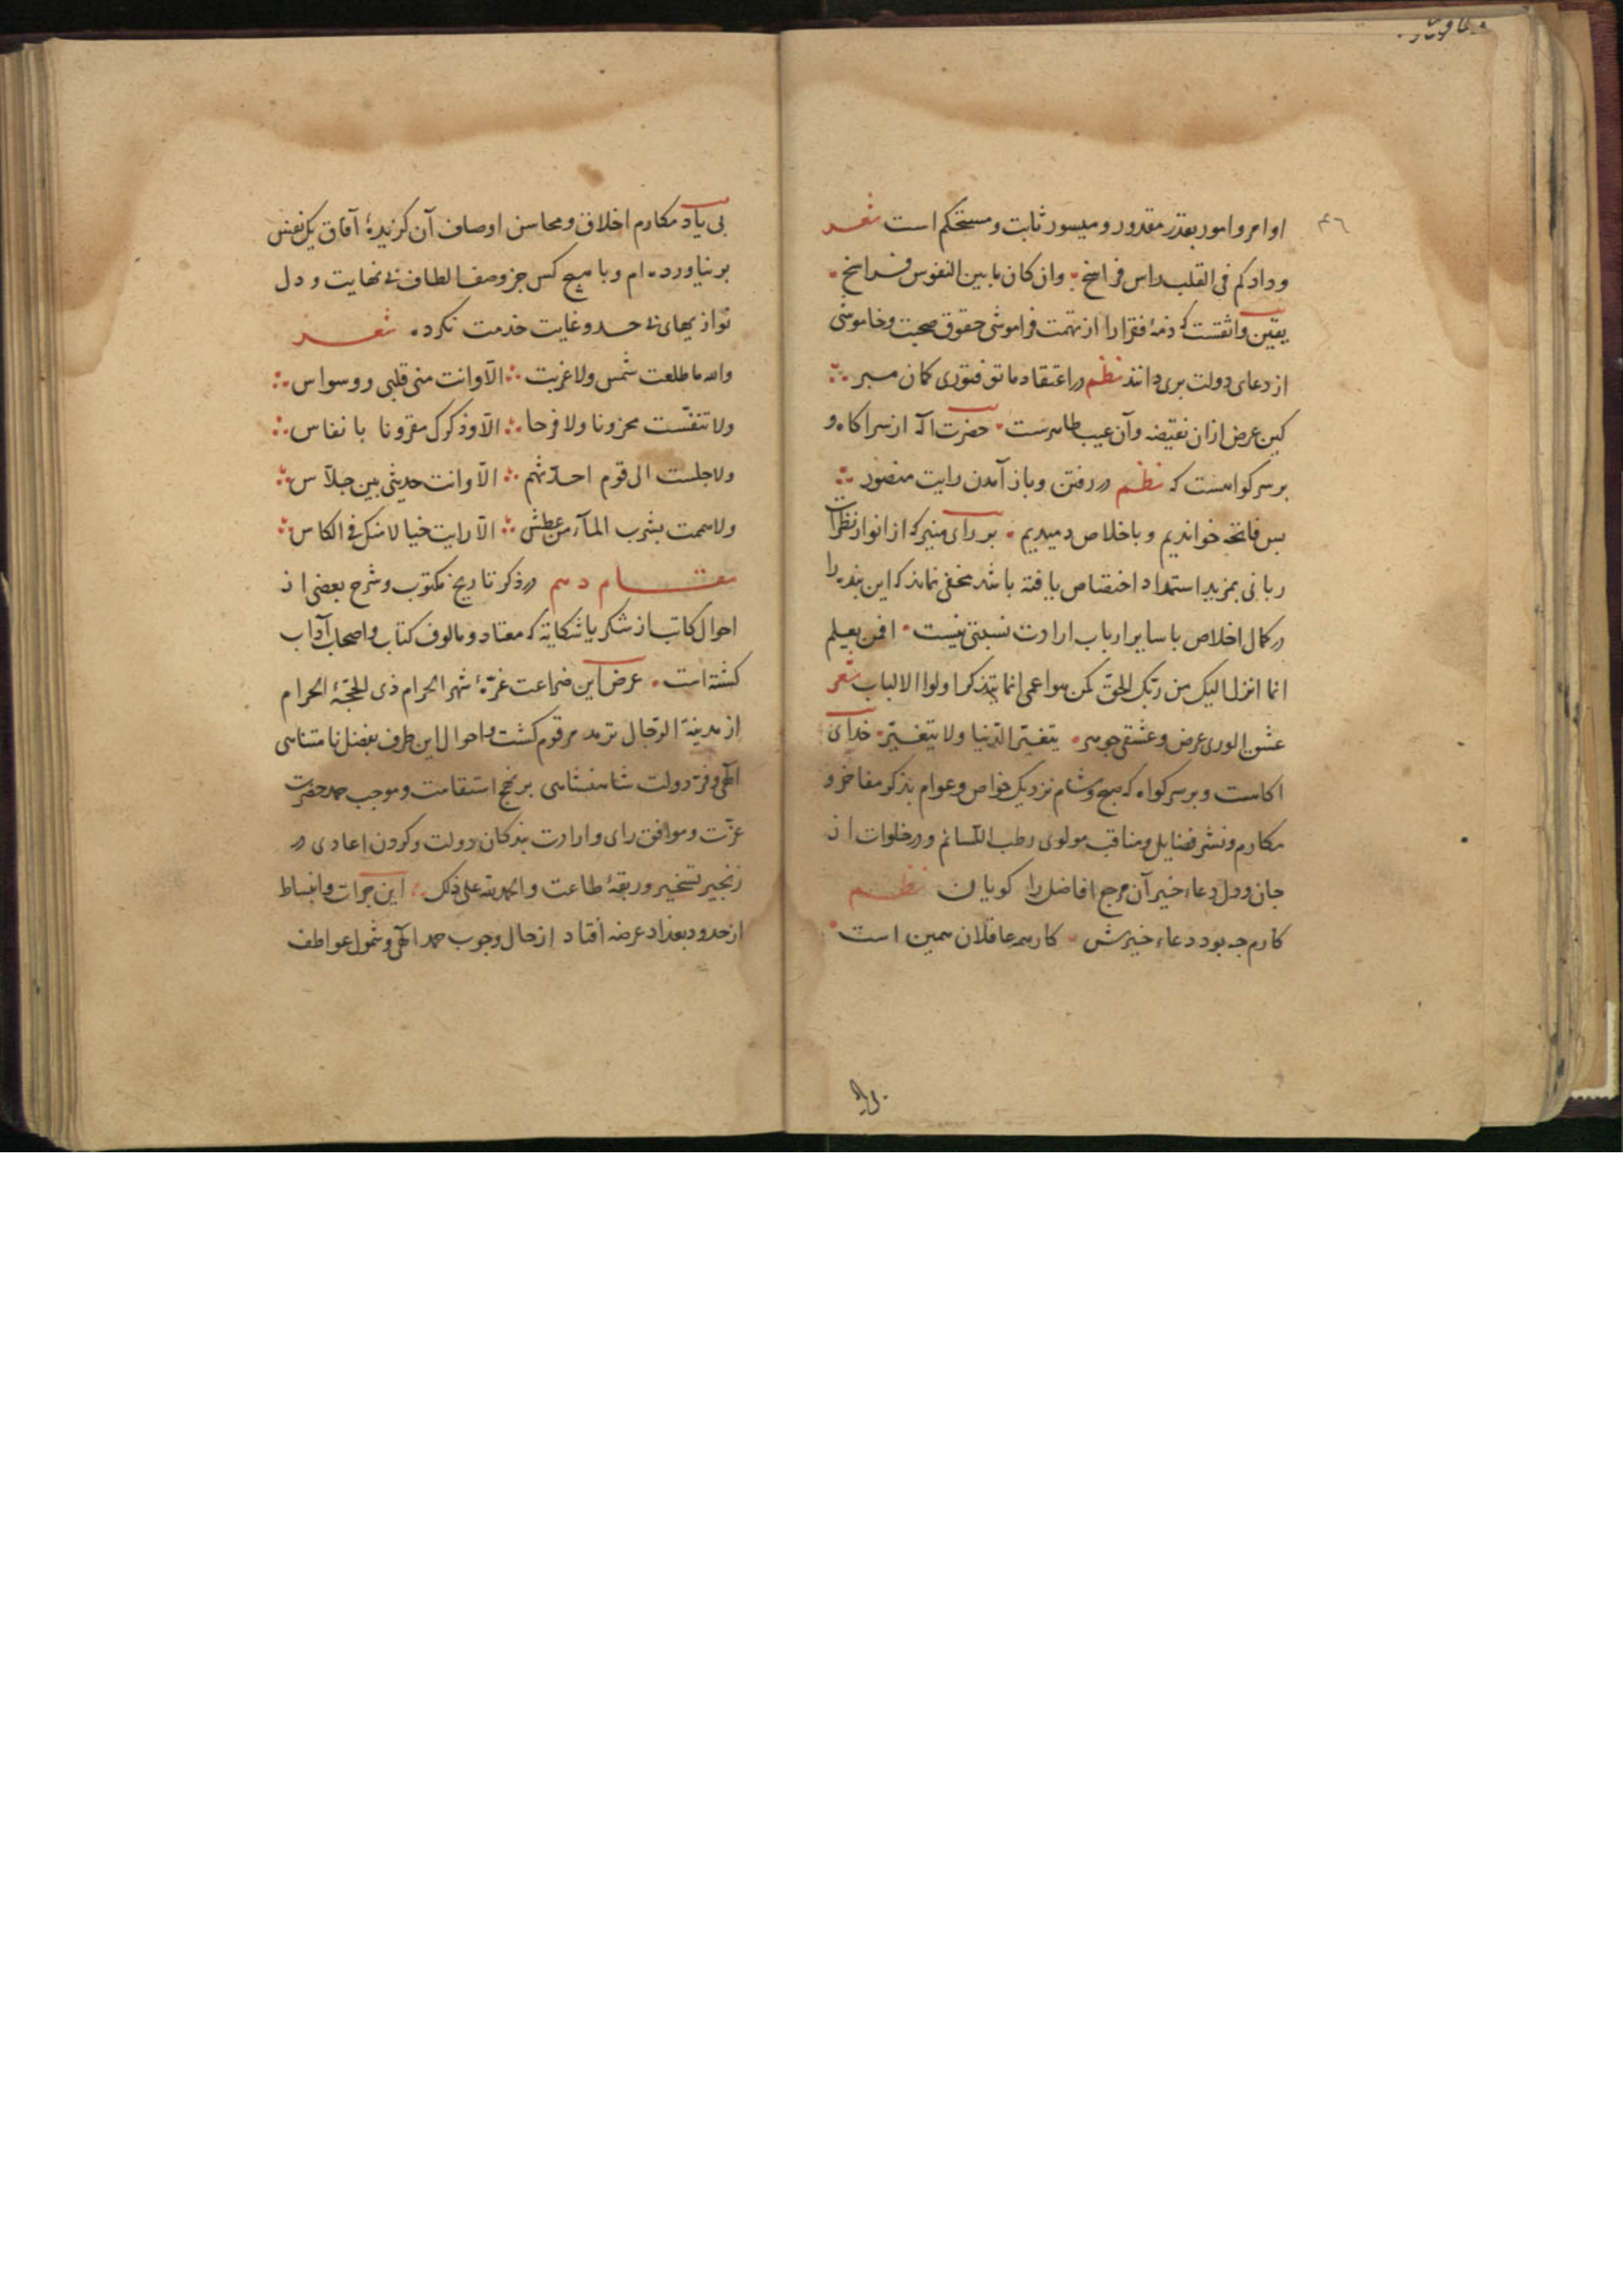 ٤٦
اوامر و امور بقدر مقدور و میسور ثابت و مستحکم است شعر
ودادکم فی القلب راس فراسخ وان کان ما بین النفوس فراسخ
یقین واثقست که ذمهٔ فقرا را از تهمت فراموشی حقوق صحبت و خاموشی
از دعای دولت بری دانند نظم در اعتقاد ما تو فتوری کمان مبر
کین عرض ازان نقیضه و آن عیب طاهرست حضرت آله از سر اکاه و
بر سر کواهست که نظم در رفتن و باز آمدن رایت منصور
بس فاتحه خواندیم و باخلاص دمیدیم بر رای منیر که از انوار نظرات
ربانی بمزید استمداد اختصاص یافته باشد مخفی نماند که این بنده را
در کمال اخلاص با سایر ارباب ارادت نسبتی نیست افمن یعلم
انما انزل الیک من ربک الحق کمن هو اعمی انما یتذکر اولوا الالباب شعر
عشق الوری عرض و عشقی جوهر یتغیر الدنیا ولا یتغیر خدای
اکاهست و بر سر کواه که صبح و شام نزدیک خواص و عوام بذکر مفاخر و
مکارم و نشر فضایل و مناقب مولوی رطب اللسانم و در خلوات از
جان و دل دعاء خیر آن مرجع افاضل را کویان نظم
کارم چه بود دعاء خیرش کار همه عاقلان همین است
بی یاد مکارم اخلاق و محاسن اوصاف آن کزیدهٔ آفاق یک نفس
بر نیاورده ام و با هیچ کس جز وصف الطاف بی نهایت و دل
نوازیهای بی حد و غایت خدمت نکرده شعر
والله ما طلعت شمس ولا غربت الّا وانت منی قلبی و وسواس
ولا تنفّست محزونا ولا فرحا الّا وذکرک مقرونا بانفاس
ولا جلست الی قوم احدّثهم الّا وانت حدیثی بین جلّاس
ولا هممت بشرب المآء من عطش الّا رایت خیالا منک فی الکاس
مقام دهم در ذکر تاریخ مکتوب و شرح بعضی از
احوال کاتب از شکر یا شکایة که معتاد و مالوف کتاب و اصحاب آداب
کشته است عرض این ضراعت غرّهٔ شهر الحرام ذی الحجّة الحرام
از مدینة الرجال ترمد مرقوم کشت و احوال این طرف بفضل نامتناهی
الهی و فر دولت شاهنشاهی بر نهج استقامت و موجب حمد حضرت
عزّت و موافق رای و ارادت بندکان دولت و کردن اعادی در
زنجیر تسخیر و ربقهٔ طاعت والحمد لله علی ذلک این جرات و انبساط
از حدود بغداد عرضه افتاد از حال وجوب حمد الهی و شمول عواطف